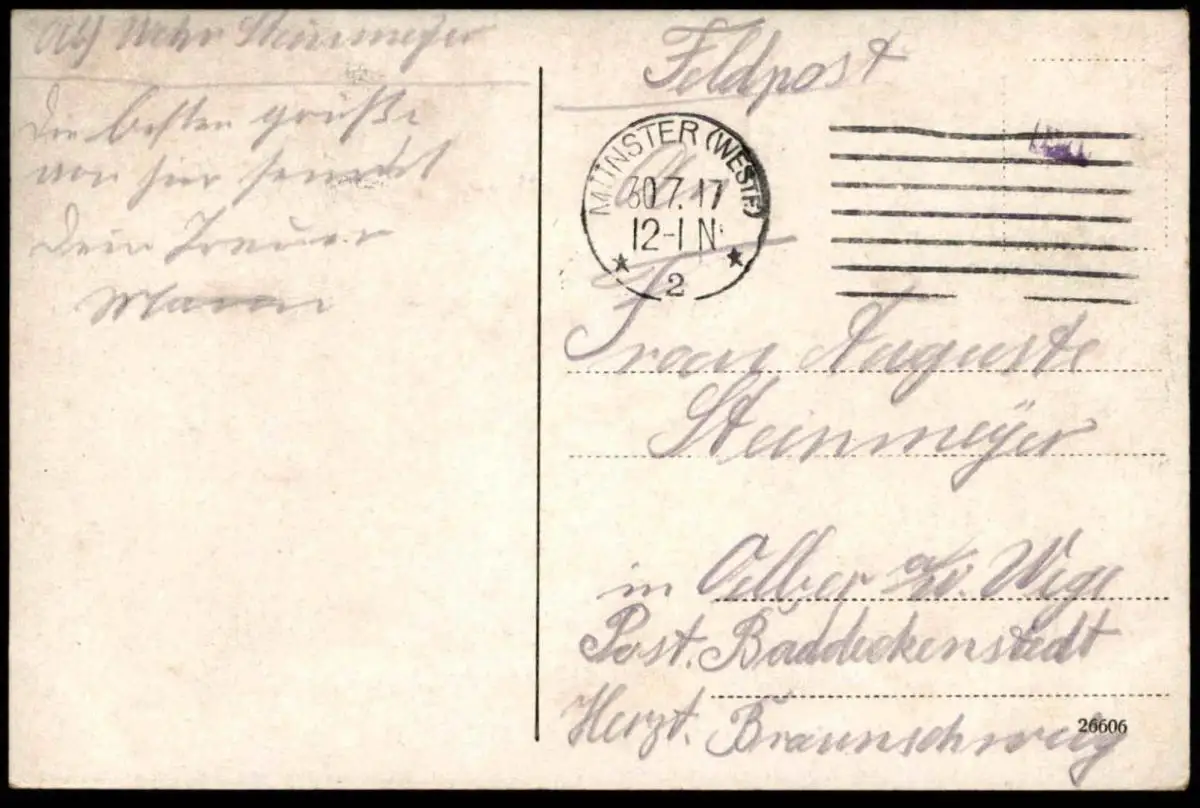 Abs Wehr Steinmeyer
Die besten grüße
von hier sendet
Dein Treuer
Mann
Feldpost
MÜNSTER (WESTF.)
30.7.17
12-1 N.
2
An
Frau Auguste
Steinmeÿer
in Oelber a/w. Wege
Post. Baddeckenstedt
Herzt. Braunschweig
26606